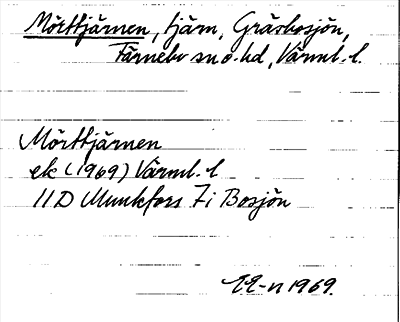 Mörttjärnen, tjärn, Gräsbosjön,
Färnebo sn o. hd, Värml. l.
Mörttjärnen
ek (1969) Värml. l
11D Munkfors 7i Bosjön
EE-n 1969.